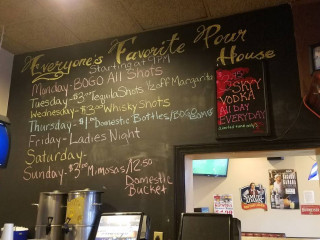 Everyone's Favorite Pour House
Starting at 4PM
Monday-BOGO All Shots
Tuesday-$3.00 Tequila Shots 1/2 off Margarita
Wednesday-$3.00 Whisky Shots
Thursday-$1.00 Domestic Bottles/BOGO
Friday-Ladies Night
Saturday-
Sunday-$3.00 Mimosas/12.50
Domestic
Bucket
SKYY
VODKA
ALL DAY
EVERYDAY